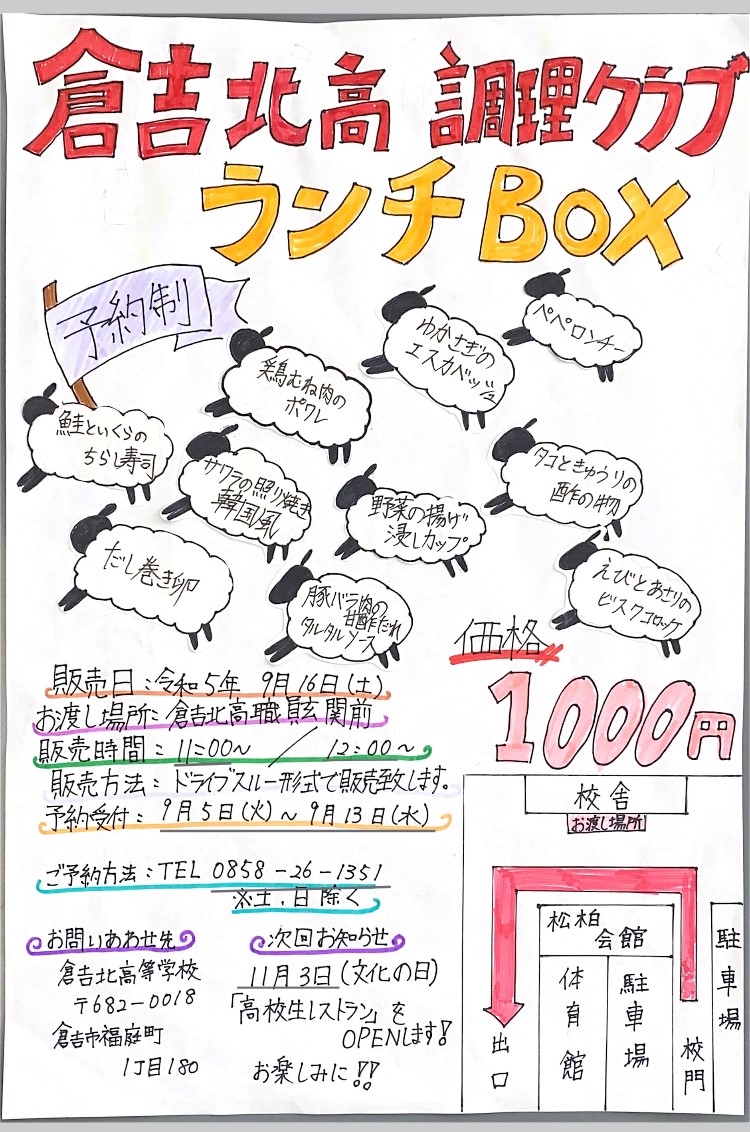 倉吉北高 調理クラブ
ランチBOX
予約制
ペペロンチー
ゆかさぎの
エスカベッシュ
鶏むね肉の
ポワレ
鮭といくらの
ちらし寿司
サワラの照り焼き
韓国風
野菜の揚げ
浸しカップ
タコときゅうりの
酢の物
だし巻き卵
豚バラ肉の
甘酢だれ
タルタルソース
えびとあさりの
ビスクコロッケ
価格
1000円
販売日:令和5年 9月16日(土)
お渡し場所:倉吉北高職員玄関前
販売時間:11:00〜 / 12:00〜
販売方法:ドライブスルー形式で販売致します。
予約受付:9月5日(火)〜9月13日(水)
ご予約方法:TEL 0858-26-1351
※土,日除く
お問いあわせ先
倉吉北高等学校
〒682-0018
倉吉市福庭町
1丁目180
次回お知らせ
11月3日(文化の日)
「高校生レストラン」を
OPENします!
お楽しみに!!
校舎
お渡し場所
松柏
会館
体育館
駐車場
駐車場
校門
出口